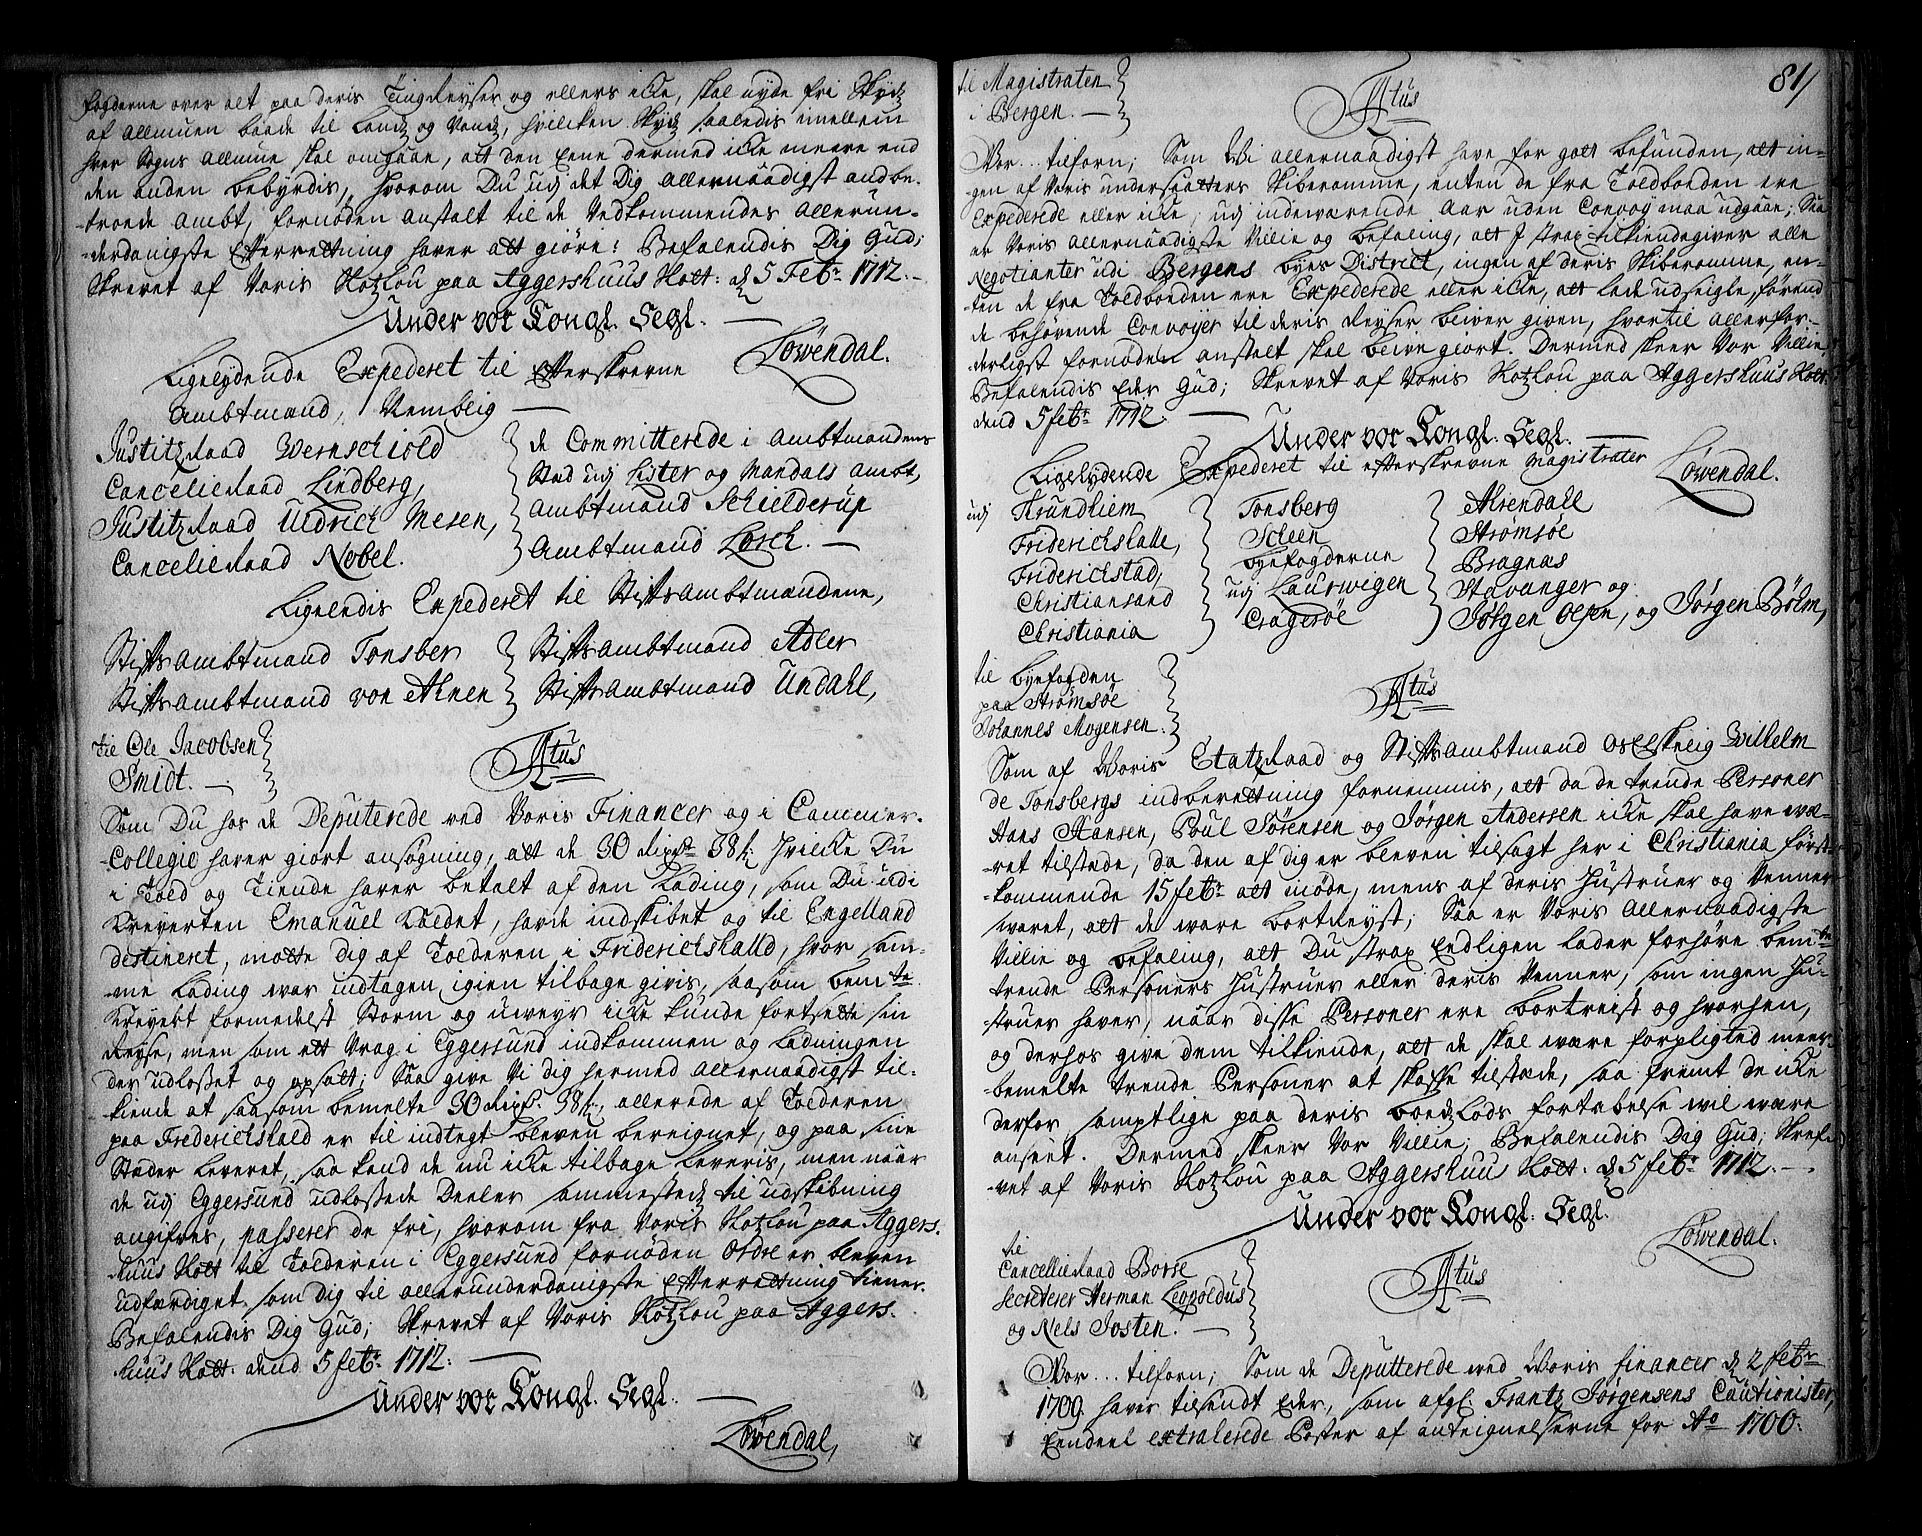 fogderne over alt paa deris Tingreyser og ellers icke, skal nyde fri Skydz
af allmuen baade til Landz og Vandz, hvilcken Skydz saaledis imellem
hver Sogns allmue skal omgaae, att den Eene dermed icke meere end
den anden bebyrdis, hvorom Du udj det Dig allernaadigst andbe-
-troede ambt, fornøden anstalt til de Vedkommendes allerun-
-derdanigste Efterrettning haver att giøre: Befalendis Dig Gud;
Skrevet af Voris Slotzlou paa Aggershuus Slott: d 5 Febr: 1712.-
Under vor Kongl. Segl.
Løwendal.
Ligelydende Expederet til efterskrevne
Ambtmand, Rembeig
Justitzraad Wernschiold
Cancelieraad Lindberg,
Justitzraad Uldrich Mesen,
Cancelieraad Nobel.
de Committerede i Ambtmandens
Stad udj Lister og Mandals Ambt,
Ambtmand Schielderup
Ambtmand Lerch.
Ligelendis Expederet til Stiftsambtmændene,
Stiftsambtmand Tonsber
Stiftsambtmand von Ahnen
Stiftsambtmand Adler
Stiftsambtmand Undahl,
til Ole Jacobsen
Smidt.
Atus
Som Du hos de Deputerede ved Voris Financer og i Cammer-
-Collegie haver giort ansøgning, att de 30 Rixdr 38 s: hvilcke Du
i Told og Tiende haver betalt af den Lading, som Du udi
Kreyerten Emanuel kaldet, hafde indskibet og til Engelland
destineret, motte dig af Tolderen i Friderichshalld, hvor sam-
-me Lading war indtagen, igien tilbage givis, saasom bemte
Kreyert formedelst Storm og uweyr icke kunde fortsette sin
Reyse, men som ett Vrag i Eggersund indkommen og Ladningen
der udlosset og opsalt; Saa give Vi dig hermed allernaadigst til-
kiende at saasom bemelte 30 Rixdr. 38 s., allerede af Tolderen
paa Frederichshald er til indtegt bleven bereignet, og paa sine
Stæder leveret, saa kand de nu icke tilbage leveris, men naar
de udj Eggersund udlossede Deeler sammestedz til udskibning
angifves, passerer de fri, hvorom fra Voris Slotzlou paa Aggers-
huus Slott til Tolderen i Eggersund fornøden Ordre er bleven
udfærdiget, som Dig til allerunderdanigste Efterrettning tiener.
Befalendis Dig Gud; Skrevet af Voris Slotzlou paa Aggers-
huus Slott: dend 5 febr: 1712:
Under vor Kongl. Segl.
Løwendal,
81
til Magistraten
i Bergen.
Atus
Vor... tilforn; Som Wi allernaadigst have for gott befunden, att in-
-gen af Voris undersaatters Skiberomme, enten de fra Toldboeden ere
Expederede eller icke, udj indeværende Aar uden Convoy maa udgaae; Saa
er Voris allernaadigste Villie og befaling, att I strax tilkiendegiver alle
Negotianter udi Bergens byes District, ingen af deris Skiberomme, en-
-ten de fra Toldboeden ere Expederede eller icke, att lade udseigle, førend
de behøvende Convoyer til deris Reyser bliver given, hvortil allerfor-
-derligst fornøden anstalt skal blive giort. Dermed skeer Vor Villie,
Befalendis Eder Gud; Skrevet af Voris Slotzlou paa Aggershuus Slott:
dend 5 febr: 1712:
Under vor Kongl. Segl.
Løwendal.
Ligelydende Expederet til efterskrevne Magistrater
udj Thrundhiem
Friderichshalle,
Friderichstad,
Christiansand
Christiania
Tonsberg
Scheen
byefogderne
udj Laurwigen
Cragerøe
Ahrendall
Strømsøe
Bragnæs
Stavanger og
Jørgen Olsen, og Jørgen Bølm,
til byefogden
paa Strømsøe
Johannes Mogensen.
Atus
Som af Voris Etatzraad og Stiftsambtmand Oss Elskelig Wilhelm
de Tonsbergs indberettning fornemmis, att da de trende Personer
Hans Hansen, Poul Sørensen og Jørgen Andersen icke skal have wæ-
-ret tilstede, da den af dig er bleven tilsagt her i Christiania først-
-kommende 15 febr: att møde, mens af deris Hustruer og Venner
waret, att de ware bortreyst; Saa er Voris Allernaadigste
Villie og befaling, att Du strax Endligen lader forhøre bemte
trende Personers Hustruer eller deris Venner, som ingen Hu-
-struer haver, naar disse Personer ere bortreist og hvorhen,
og derhos give dem tilkiende, att de skal være forpligted meer-
-bemelte trende Personer at skaffe tilstæde, saa fremt de icke
derfor samptlige paa deris boedzlods fortabelse wil være
anseet. Dermed skeer Vor Villie; Befalendis Dig Gud; Skref-
-vet af Voris Slotzlou paa Aggershuus Slott: d 5 febr: 1712.-
Under vor Kongl. Segl.
Løwendal.
til
Cancellieraad Borse
Secreterer Herman Leopoldus
og Niels Josten.
Atus
Vor... tilforn; Som de Deputterede ved Voris financer d 2 febr
1709 haver tilsendt Eder, som afgl. Frantz Jørgensens Cautionister,
Eendeel extraherede Poster af antegnelserne for Ao 1700: